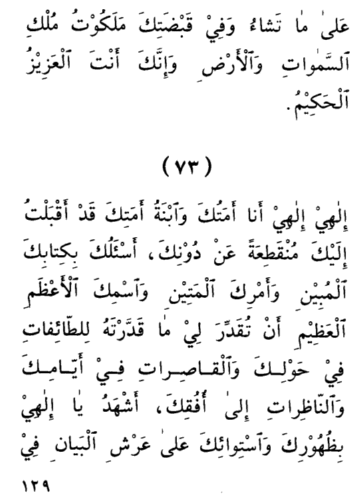 عَلىٰ مٰا تَشٰاءُ وَفِيْ قَبْضَتِكَ مَلَكُوْتُ مُلْكِ
ٱلسَّمٰواتِ وَٱلْأَرْضِ وَإِنَّكَ أَنْتَ ٱلْعَزِيْزُ
ٱلْحَكِيْمُ.
(٧٣)
إِلٰهِيْ إِلٰهِيْ أَنا أَمَتُكَ وَٱبْنَةُ أَمَتِكَ قَدْ أَقْبَلْتُ
إِلَيْكَ مُنْقَطِعَةً عَنْ دُوْنِكَ، أَسْئَلُكَ بِكِتابِكَ
ٱلْمُبِيْنِ وَأَمْرِكَ ٱلْمَتِيْنِ وَٱسْمِكَ ٱلْأَعْظَمِ
ٱلْعَظِيْمِ أَنْ تُقَدِّرَ لِيْ مٰا قَدَّرْتَهُ لِلطّٰائِفاتِ
فِيْ حَوْلِكَ وَٱلْقٰاصِراتِ فِيْ أَيّٰامِكَ
وَٱلنّٰاظِراتِ إِلىٰ أُفُقِكَ، أَشْهَدُ يٰا إِلٰهِيْ
بِظُهُوْرِكَ وَٱسْتِوائِكَ عَلىٰ عَرْشِ ٱلْبَيانِ فِيْ
١٢٩